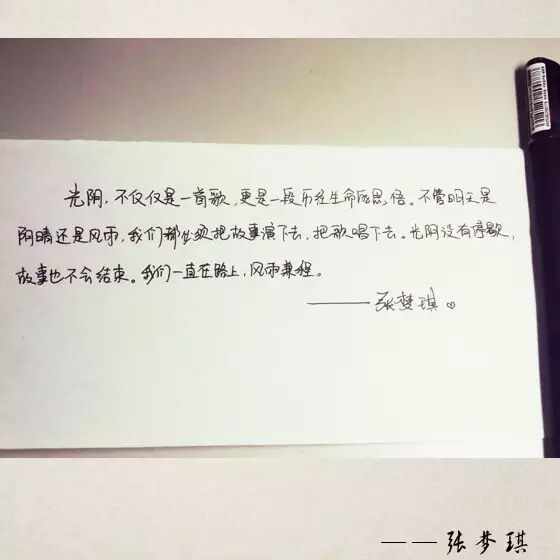 光阴，不仅仅是一首歌，更是一段历经生命的思悟。不管明天是
阴晴还是风雨，我们都必须把故事演下去，把歌唱下去。光阴没有停歇，
故事也不会结束。我们一直在路上，风雨兼程。
——张梦琪
——张梦琪